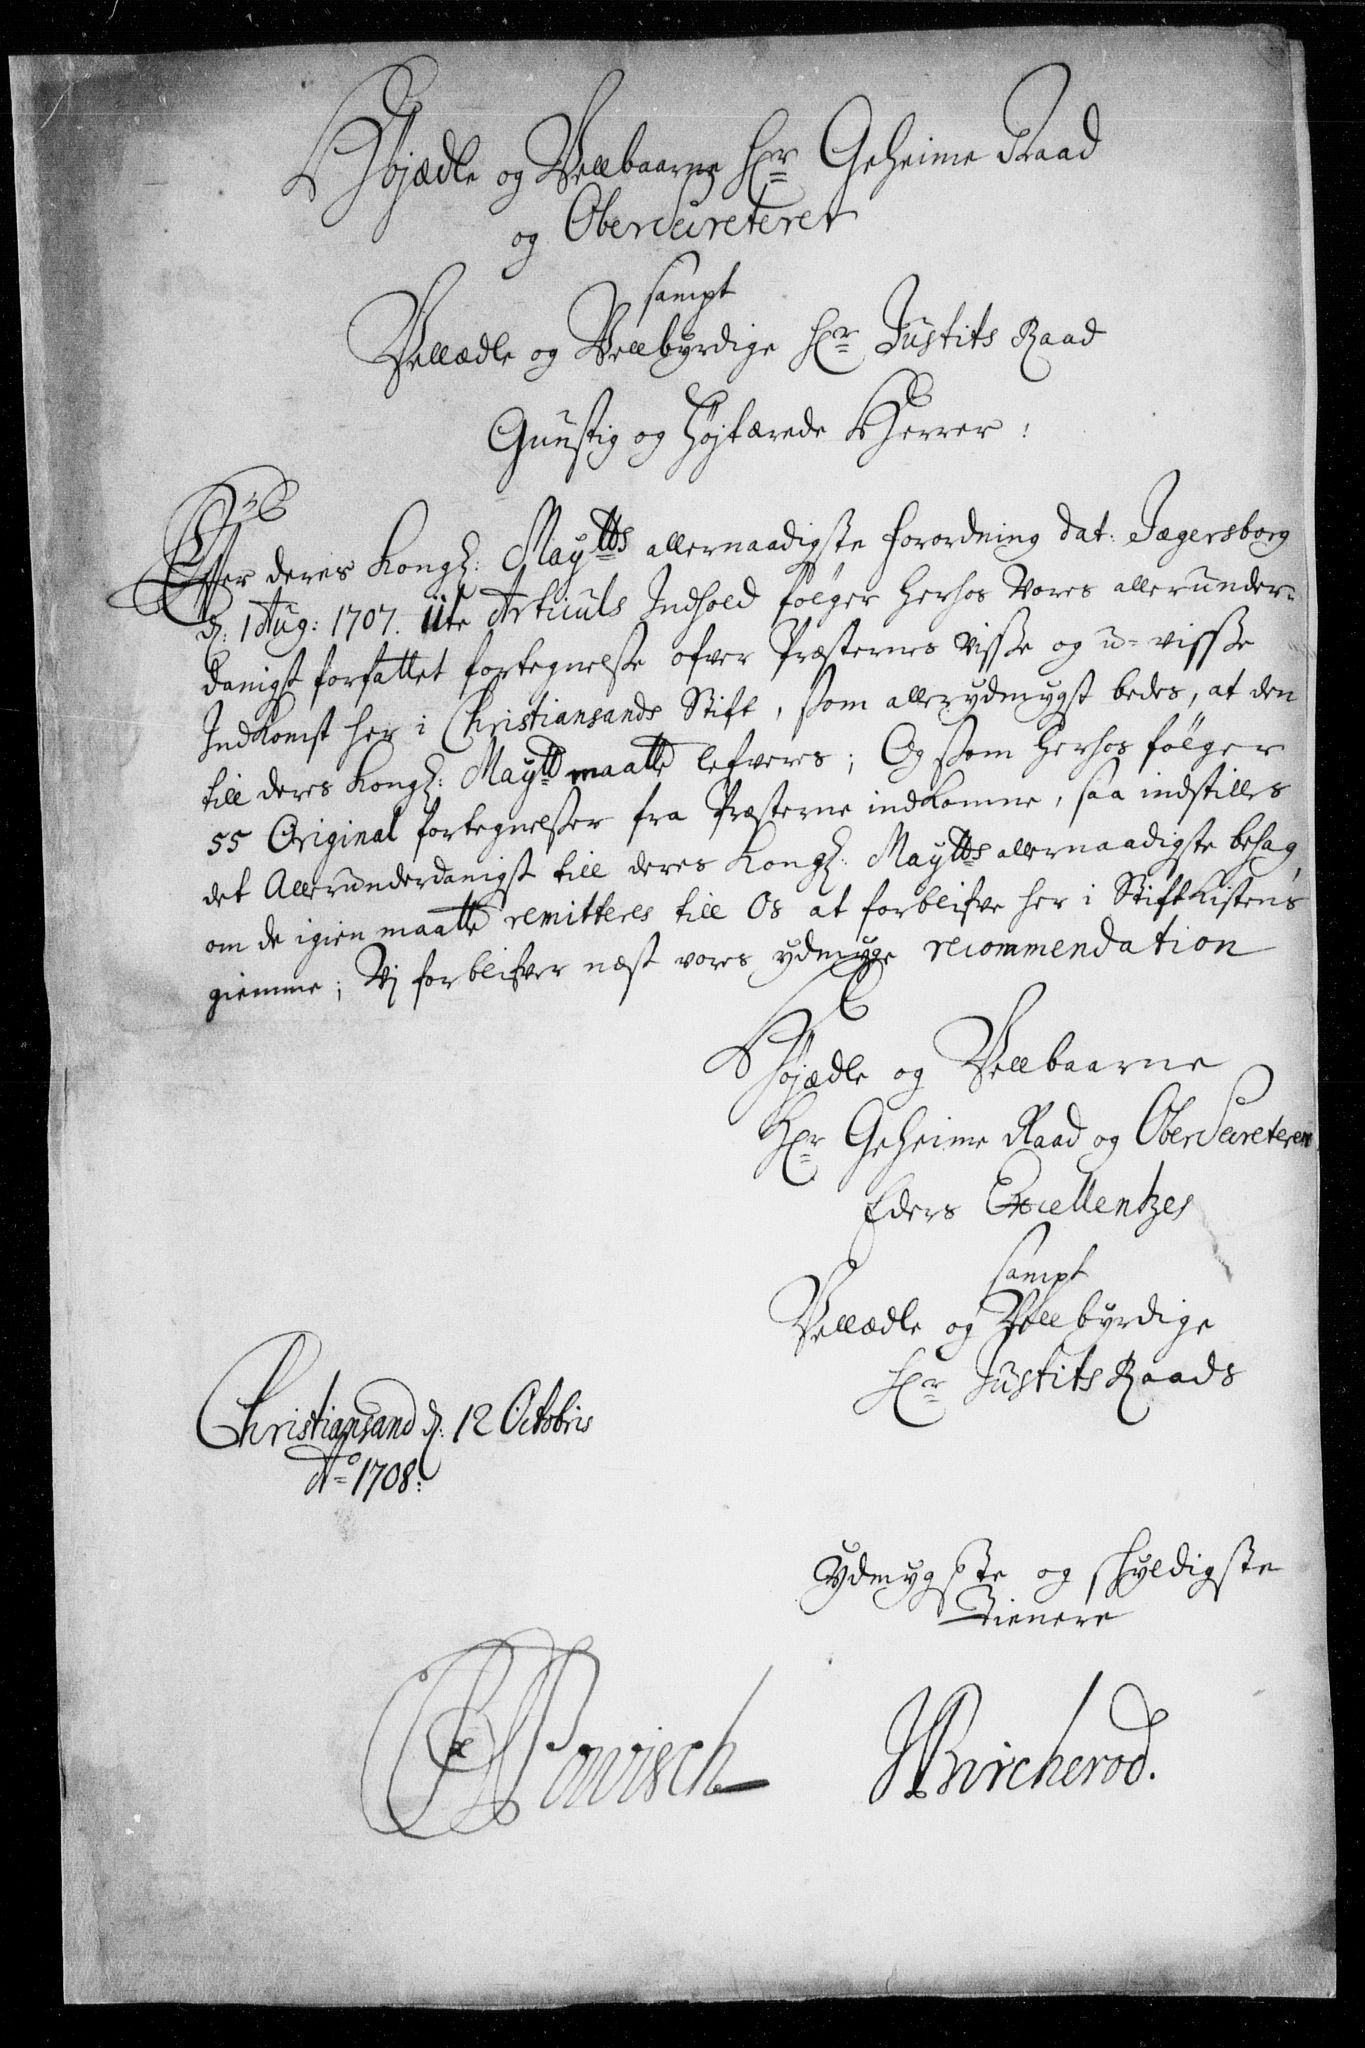 Højædle og Vellbaarne Hr Geheime Raad
og Obersecreterer
sampt
Vellædle og Vellbyrdige Hr Justits Raad
Gunstig og Højtærede Herrer:
Effter deres Kongl: Maytts allernaadigste forordning dat: Jægersborg
d: 1 Aug: 1707. 11te Articuls Indhold følger herhos Vores allerunder-
danigst forfattet fortegnelsse ofver Præsternes visse og u-visse
Indkomst her i Christiansands Stift, som allerydmygst bedes, at den
till deres Kongl: Maytt maatte lefveres; Og som herhos følger
55 Original fortegnelsser fra Præsterne indkomne, saa indstilles
det Allerunderdanigst till deres Kongl: Maytts allernaadigste behag,
om de igien maatte remitteres till Os at forblifve her i Stiftkistens
giemme; Vj forblifver næst vores ydmyge recommendation
Højædle og Vellbaarne
Hr Geheime Raad og Obersecreterer
Eders Excellentzes
sampt
Vellædle og Vellbyrdige
Hr Justits Raads
Christiansand d: 12 Octobris
Ao 1708:
ydmygste og skyldigste
Tienere
Powisch
JBircherod.